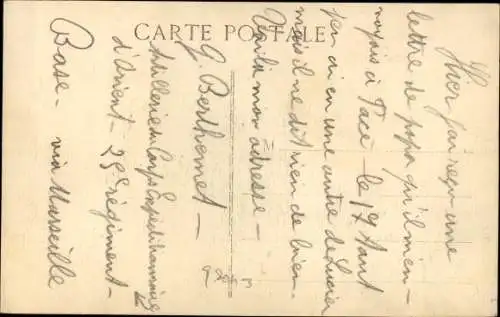 CARTE POSTALE
Hier j'ai reçu une
lettre de papa qu'il m'en-
voyais à Pacé - le 17 Aout
j'en ai eu une autre de Lucien
mais il ne dit rien de bien -
Voilà mon adresse -
G. Berthemet -
Artillerie du Corps Expéditionnaire
d'Orient - 25e régiment -
Base - via Marseille